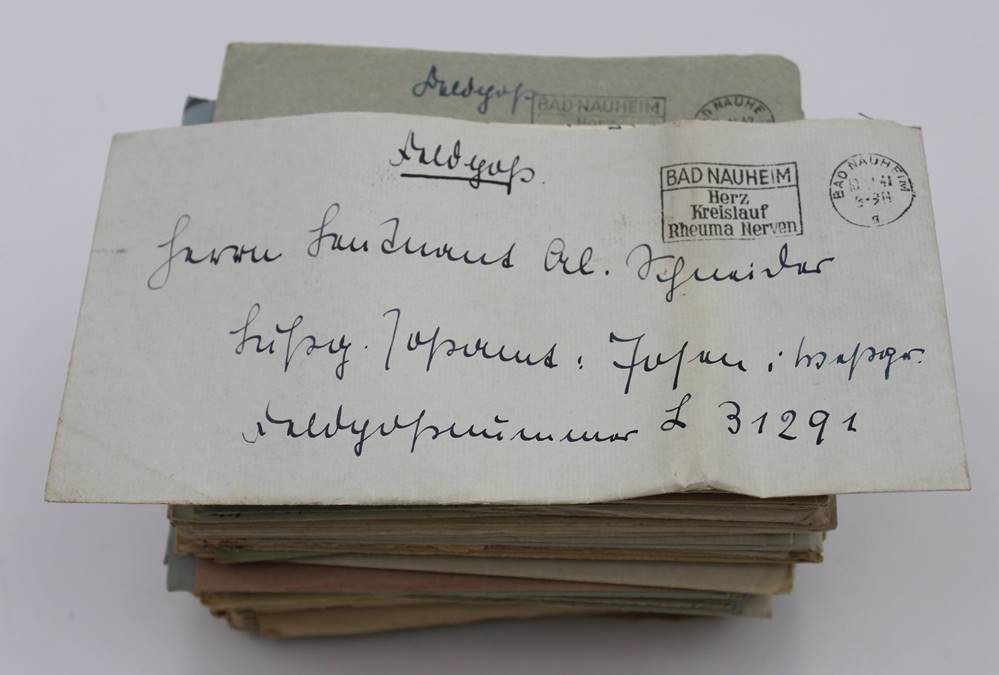 Feldpost
BAD NAUHEIM
Herz
Feldpost.
BAD NAUHEIM
Herz
Kreislauf
Rheuma Nerven
BAD NAUHEIM
41
g
Herrn Leutnant Al. Schneider
Luftg. Postamt : Posen i. Westpr.
Feldpostnummer L 31291